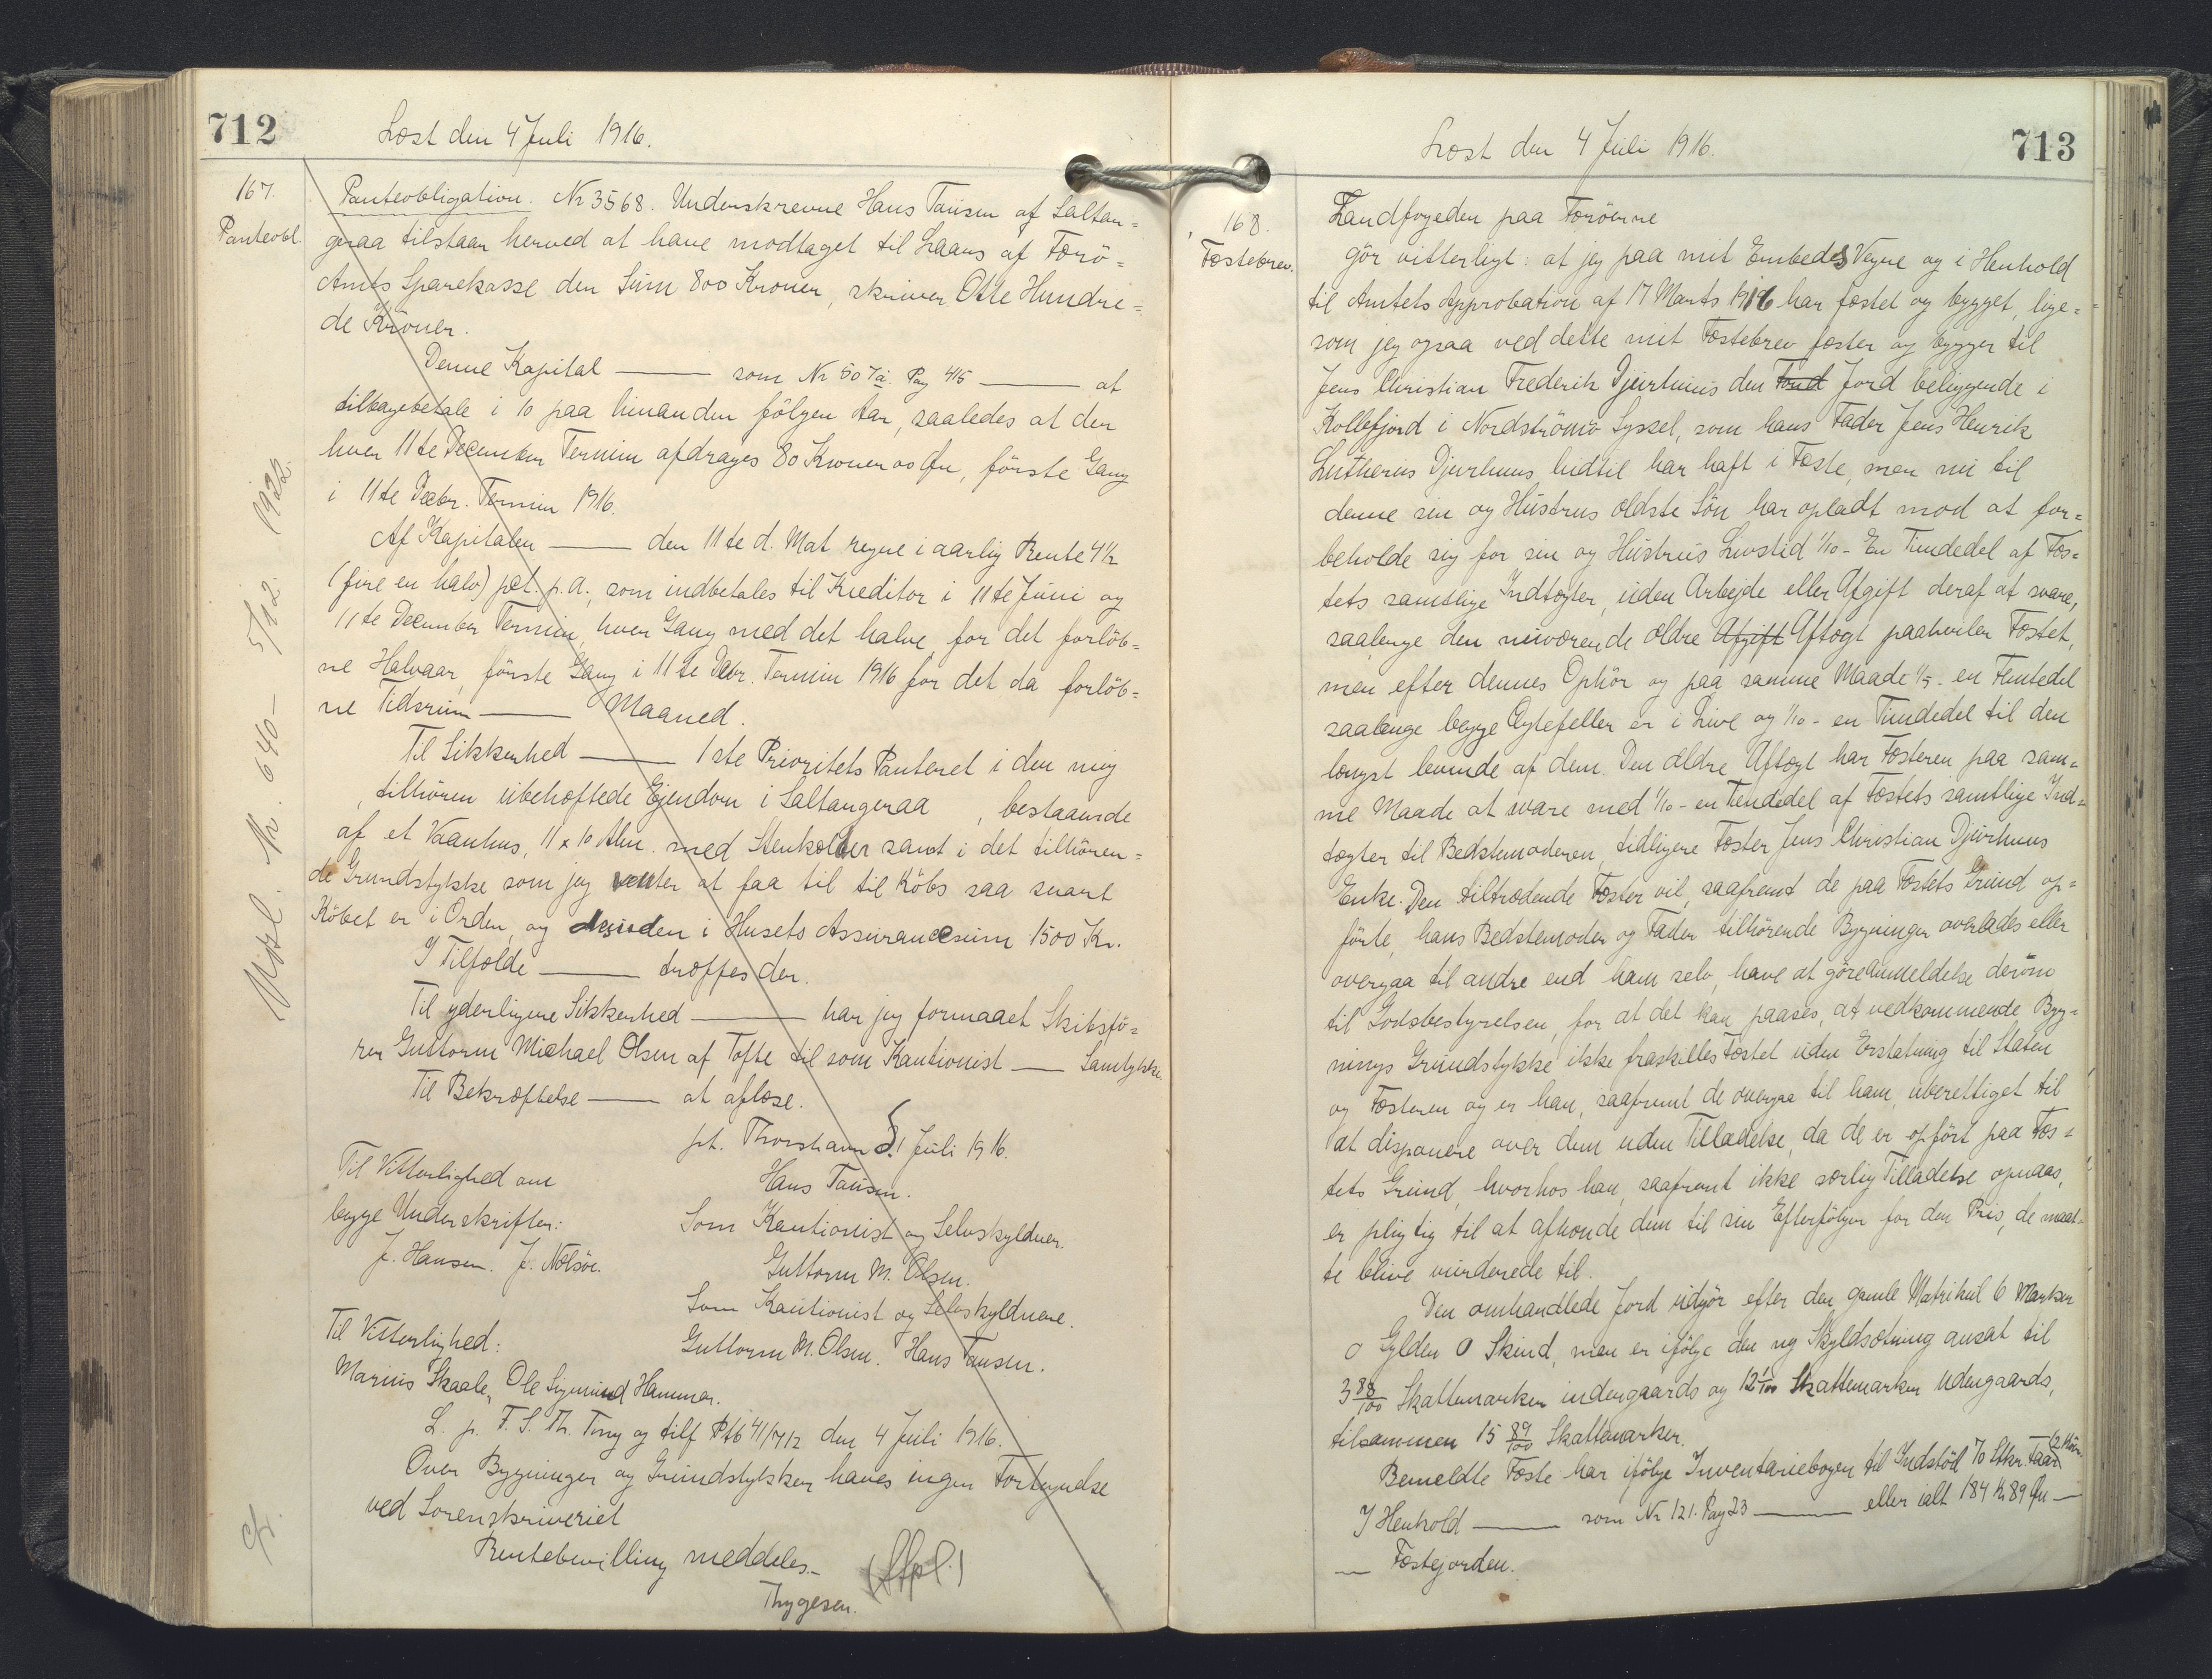 712
Læst den 4 Juli 1916.
167.
Panteobl.
Panteobligation. Nr 3568. Underskrevne Hans Tausen af Saltan=
geraa tilstaar herved at have modtaget til Laans af Færö=
Amts Sparekasse den Sum 800 Kroner, skriver Otte Hundre=
de Kroner.
Denne Kapital — som Nr 507a. Pag 415 — at
tilbagebetale i 10 paa hinanden fölgen Aar, saaledes at der
hver 11te December Termin afdrages 80 Kroner 00 Øre, förste Gang
i 11te Decbr. Termin 1916.
Af Kapitalen — den 11te d. Mat regne i aarlig Rente 4½
(fire en halv) pct. p.a., som indbetales til Kreditor i 11te Juni og
11te December Termin, hver Gang med det halve for det forlöb=
ne Halvaar, förste Gang i 11te Decbr. Termin 1916 for det da forlöb=
ne Tidsrum — Maaned.
Til Sikkerhed — 1ste Prioritets Panteret i den mig
tilhören ubehæftede Ejendom i Saltangeraa, bestaaende
af et Vaanhus, 11 x 10 Alen. med Stenkælder samt i det tilhören=
de Grundstykke som jeg venter at faa til til Köbs saa snart
Köbet er i Orden, og desuden i Husets Assurancesum 1500 Kr.
I Tilfælde — træffes der.
Til yderligere Sikkerhed — har jeg formaaet Skibsfö=
rer Guttorm Michael Olsen af Tofte til som Kautionist — Samtykke.
Til Bekræftelse — at aflæse.
pt. Thorshavn d. 1 Juli 1916.
Til Vitterlighed om
begge Underskrifter:
J. Hansen. J. Nolsöe.
Hans Tausen.
Som Kautionist og Selvskyldner.
Guttorm M. Olsen.
Som Kautionist og Selvskyldnere.
Guttorm M. Olsen. Hans Tausen.
Til Vitterlighed:
Marius Skaale, Ole Sigmund Hammer.
L. p. F. S. Th. Ting og tilf Ptb 41/712 den 4 Juli 1916.
Over Bygninger og Grundstykker haves ingen Fortegnelse
ved Sorenskriveriet
Rentebevilling meddeles.
Thygesen.
Udsl. Nr. 640 – 5/12. 1922.
713
Læst den 4 Juli 1916.
168.
Fæstebrev.
Landfogeden paa Færöerne
gör vitterligt: at jeg paa mit Embeds Vegne og i Henhold
til Amtets Approbation af 17 Marts 1916 har fæstet og bygget, lige=
som jeg ogsaa ved dette mit Fæstebrev fæster og bygger til
Jens Christian Frederik Djurhuus den Jord beliggende i
Kollefjord i Nordströmö Syssel, som hans Fader Jens Henrik
Lutherus Djurhuus hidtil har haft i Fæste, men nu til
denne sin og Hustrus ældste Sön har opladt mod at for=
beholde sig for sin og Hustrus Livstid 1/10 - En Tiendedel af Fæs=
tets samtlige Indtægter, uden Arbejde eller Afgift deraf at svare,
saalenge den nuværende ældre Afgift Aftægt paahviler Fæstet,
men efter dennes Ophör og paa samme Maade 1/5 - en Femtedel
saalænge begge Ægtefeller er i Live og 1/10 - en Tiendedel til den
længst levende af dem. Den ældre Aftægt har Fæsteren paa sam=
me Maade at svare med 1/10 - en Tiendedel af Fæstets samtlige Ind=
tægter til Bedstemoderen, tidligere Fæster Jens Christian Djurhuus
Enke. Den tiltrædende Fæster vil, saafremt de paa Fæstets Grund op=
förte, hans Bedstemoder og Fader tilhörende Bygninger overlades eller
overgaa til andre end ham selv, have at göre Anmeldelse derom
til Godsbestyrelsen, for at det kan paases, at vedkommende Byg=
nings Grundstykke ikke fraskilles Fæstet uden Erstatning til Staten
og Fæsteren og er han, saafremt de overgaa til ham, uberettiget til
at disponere over dem uden Tilladelse, da de er opfört paa Fæs=
tets Grund, hvorhos han, saafremt ikke særlig Tilladelse opnaas,
er pligtig til at afhænde dem til sin Efterfölger for den Pris, de maat=
te blive vurderede til.
Den omhandlede Jord udgör efter den gamle Matrikul 6 Marker
0 Gylden 0 Skind, men er ifölge den ny Skyldsætning ansat til
3 88/100 Skattemarker indengaards og 12 1/100 Skattemarker udengaards,
tilsammen 15 89/100 Skattemarker.
Bemeldte Fæste har ifölge Inventariebogen til Indstöd 70 Stkr. Faar
I Henhold — som Nr 121. Pag 23 — eller ialt 184 Kr 89 Øre —
— Fæstejorden.